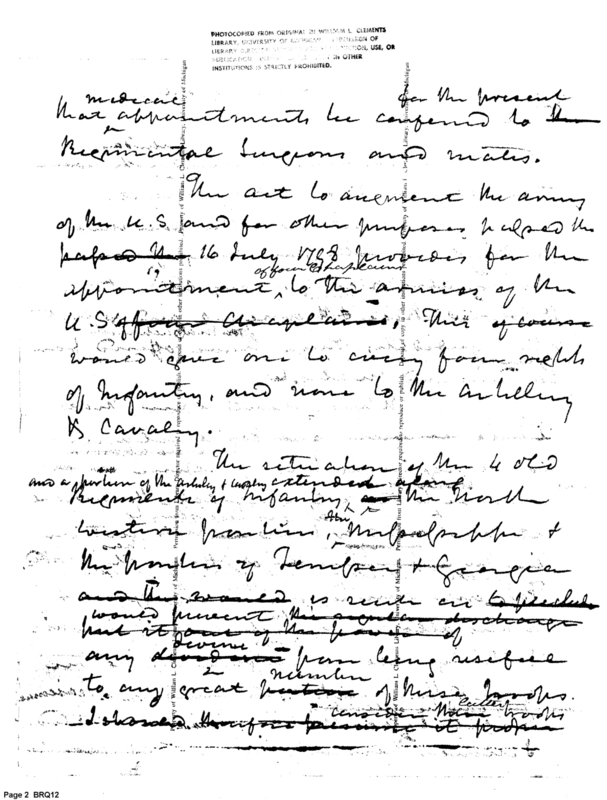 PHOTOCOPIED FROM ORIGINAL IN WILLIAM L. CLEMENTS
LIBRARY, UNIVERSITY OF
LIBRARY USE, OR
PUBLICATION IN OTHER
INSTITUTIONS IS STRICTLY PROHIBITED.
medical for the present
that appointments be confined to the
Regimental Surgeons and mates.
The act to augment the army
of the U.S and for other purposes passed the
passed the 16 July 1798 provides for the
of four Chaplains
appointment, to the armies of the
U.S of four Chaplains. This of course
would give one to every four regts
of Infantry, and none to the artillery
& Cavalry.
The situation of the 4 old
and a portion of the artillery & cavalry extended along
Regiments of Infantry on the North
western frontier, the Mississippi &
the frontier of Tennessee & Georgia
and the would is such as to preclude
would prevent the regular discharge
put it out of the power of
any divine from being useful
to any great portion number of these troops.
I should therefore presume it proper
consider these troops
Page 2 BRQ12